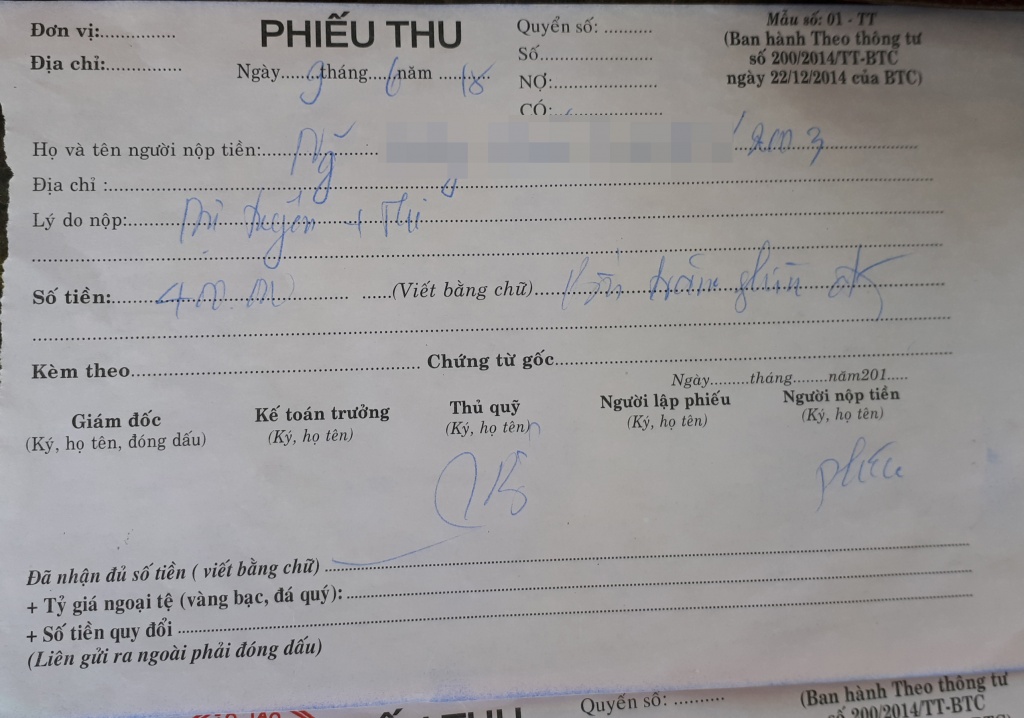 Đơn vị:...............
PHIẾU THU
Quyển số: ..........
Mẫu số: 01 - TT
(Ban hành Theo thông tư
số 200/2014/TT-BTC
ngày 22/12/2014 của BTC)
Địa chỉ:...............
Ngày 9 tháng 6 năm 18
Số.......................
NỢ:.....................
CÓ:.....................
Họ và tên người nộp tiền: Mỹ 2003
Địa chỉ :
Lý do nộp: + Thi
Số tiền: 400.000 (Viết bằng chữ) Bốn trăm nghìn
Kèm theo Chứng từ gốc
Ngày.........tháng........năm201.....
Giám đốc
(Ký, họ tên, đóng dấu)
Kế toán trưởng
(Ký, họ tên)
Thủ quỹ
(Ký, họ tên)
Người lập phiếu
(Ký, họ tên)
Người nộp tiền
(Ký, họ tên)
Đã nhận đủ số tiền ( viết bằng chữ)
+ Tỷ giá ngoại tệ (vàng bạc, đá quý):
+ Số tiền quy đổi
(Liên gửi ra ngoài phải đóng dấu)
Quyển số: ..........
(Ban hành Theo thông tư
số 200/2014/TT-BTC